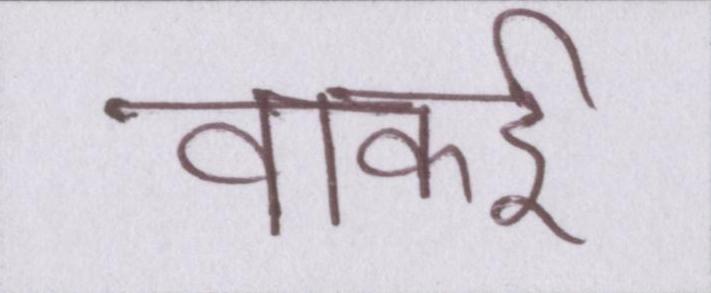 वाकई